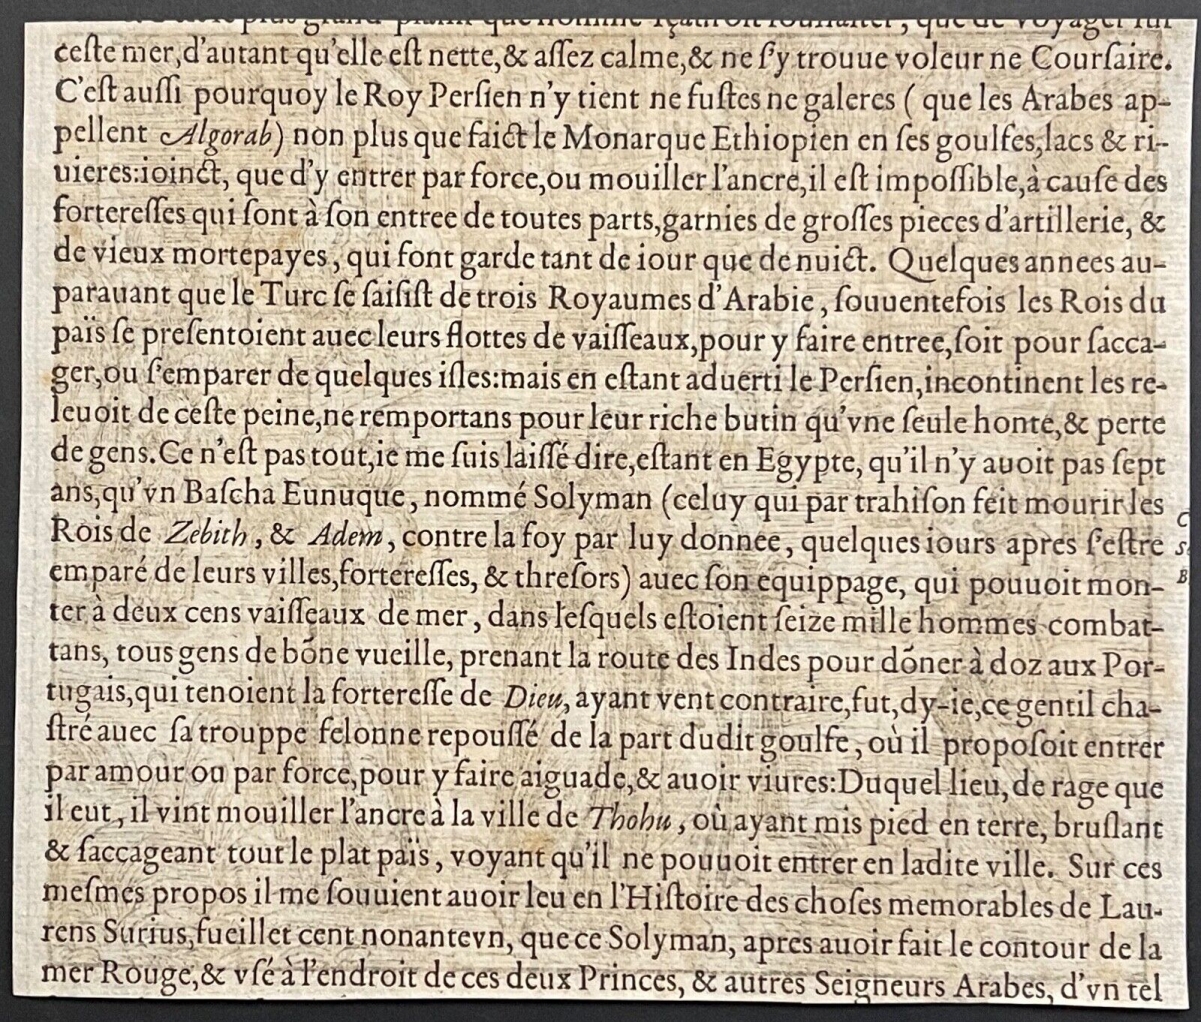 plus grand plaisir que homme sçauroit souhaiter, que de voyager sur
ceſte mer,d'autant qu'elle eſt nette,& aſſez calme,& ne ſ'y trouue voleur ne Courſaire.
C'eſt auſſi pourquoy le Roy Perſien n'y tient ne fuſtes ne galeres ( que les Arabes ap-
pellent Algorab) non plus que faict le Monarque Ethiopien en ſes goulfes,lacs & ri-
uieres:ioinct, que d'y entrer par force,ou mouiller l'ancre,il eſt impoſſible,à cauſe des
fortereſſes qui ſont à ſon entree de toutes parts,garnies de groſſes pieces d'artillerie, &
de vieux mortepayes, qui font garde tant de iour que de nuict. Quelques annees au-
parauant que le Turc ſe ſaiſiſt de trois Royaumes d'Arabie, ſouuentefois les Rois du
païs ſe preſentoient auec leurs flottes de vaiſſeaux,pour y faire entree,ſoit pour ſacca-
ger,ou ſ'emparer de quelques iſles:mais en eſtant aduerti le Perſien,incontinent les re-
leuoit de ceſte peine,ne remportans pour leur riche butin qu'vne ſeule honte,& perte
de gens.Ce n'eſt pas tout,ie me ſuis laiſſé dire,eſtant en Egypte, qu'il n'y auoit pas ſept
ans,qu'vn Baſcha Eunuque, nommé Solyman (celuy qui par trahiſon feit mourir les
Rois de Zebith, & Adem, contre la foy par luy donnée, quelques iours apres ſ'eſtre
emparé de leurs villes,fortereſſes, & threſors) auec ſon equippage, qui pouuoit mon-
ter à deux cens vaiſſeaux de mer, dans leſquels eſtoient ſeize mille hommes combat-
tans, tous gens de bõne vueille, prenant la route des Indes pour dõner à doz aux Por-
tugais,qui tenoient la fortereſſe de Dieu, ayant vent contraire,fut,dy-ie,ce gentil cha-
ſtré auec ſa trouppe felonne repouſſé de la part dudit goulfe, où il propoſoit entrer
par amour ou par force,pour y faire aiguade,& auoir viures:Duquel lieu, de rage que
il eut, il vint mouiller l'ancre à la ville de Thohu, où ayant mis pied en terre, bruſlant
& ſaccageant tout le plat païs, voyant qu'il ne pouuoit entrer en ladite ville. Sur ces
meſmes propos il me ſouuient auoir leu en l'Hiſtoire des choſes memorables de Lau-
rens Surius,fueillet cent nonantevn, que ce Solyman, apres auoir fait le contour de la
mer Rouge,& vſé à l'endroit de ces deux Princes, & autres Seigneurs Arabes, d'vn tel